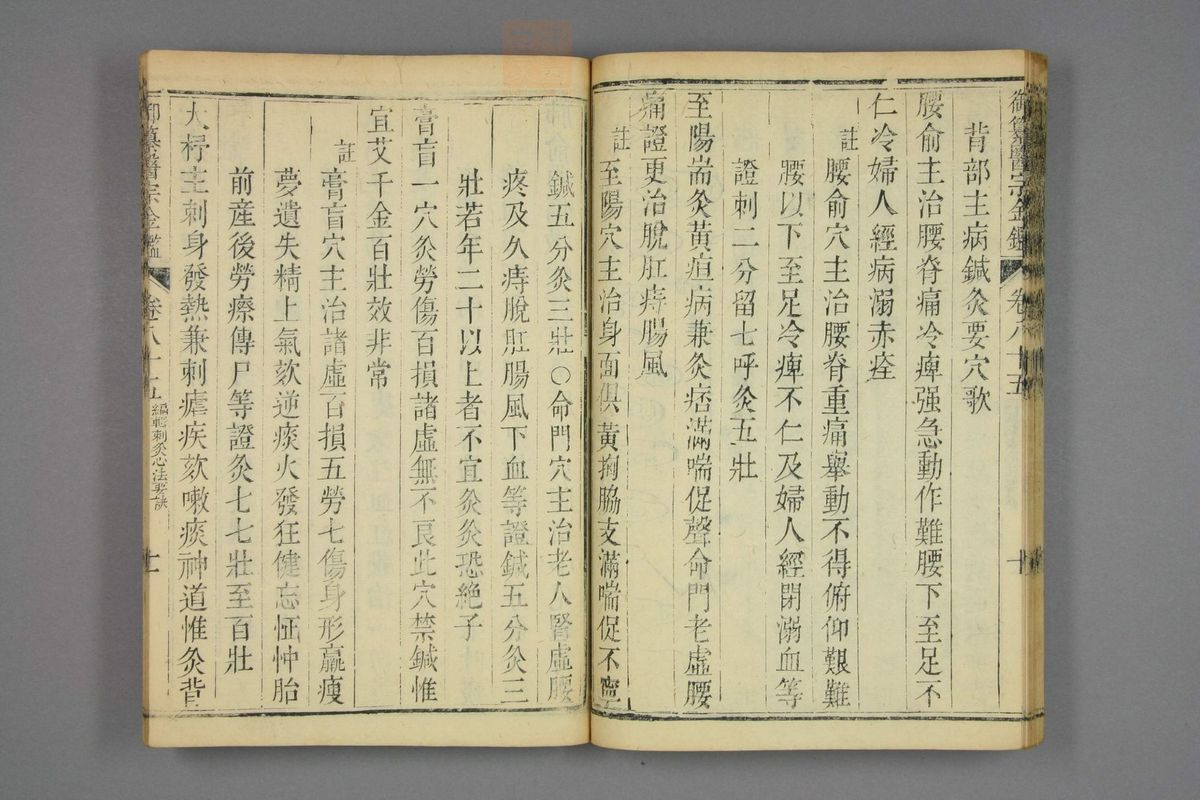 御纂醫宗金鑑 卷八十五 十
背部主病鍼灸要穴歌
腰俞主治腰脊痛冷痺强急動作難腰下至足不
仁冷婦人經病溺赤痊
註腰俞穴主治腰脊重痛舉動不得俯仰艱難
腰以下至足冷痺不仁及婦人經閉溺血等
證刺二分留七呼灸五壯
至陽耑灸黃疸病兼灸痞滿喘促聲命門老虛腰
痛證更治脫肛痔腸風
註至陽穴主治身面俱黃胸脇支滿喘促不寧
鍼五分灸三壯○命門穴主治老人腎虛腰
疼及久痔脫肛腸風下血等證鍼五分灸三
壯若年二十以上者不宜灸灸恐絶子
膏肓一穴灸勞傷百損諸虛無不良此穴禁鍼惟
宜艾千金百壯效非常
註膏肓穴主治諸虛百損五勞七傷身形羸瘦
夢遺失精上氣欬逆痰火發狂健忘怔忡胎
前產後勞瘵傳尸等證灸七七壯至百壯
大杼主刺身發熱兼刺瘧疾欬嗽痰神道惟灸背
御纂醫宗金鑑 卷八十五 編輯刺灸心法要訣 十